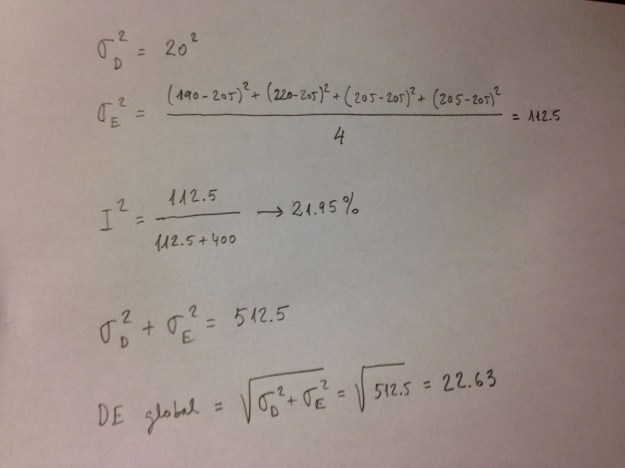 σ_D² = 20²
σ_E² = ((190-205)² + (220-205)² + (205-205)² + (205-205)²) / 4 = 112.5
I² = 112.5 / (112.5+400) → 21.95%
σ_D² + σ_E² = 512.5
DE global = √(σ_D² + σ_E²) = √512.5 = 22.63